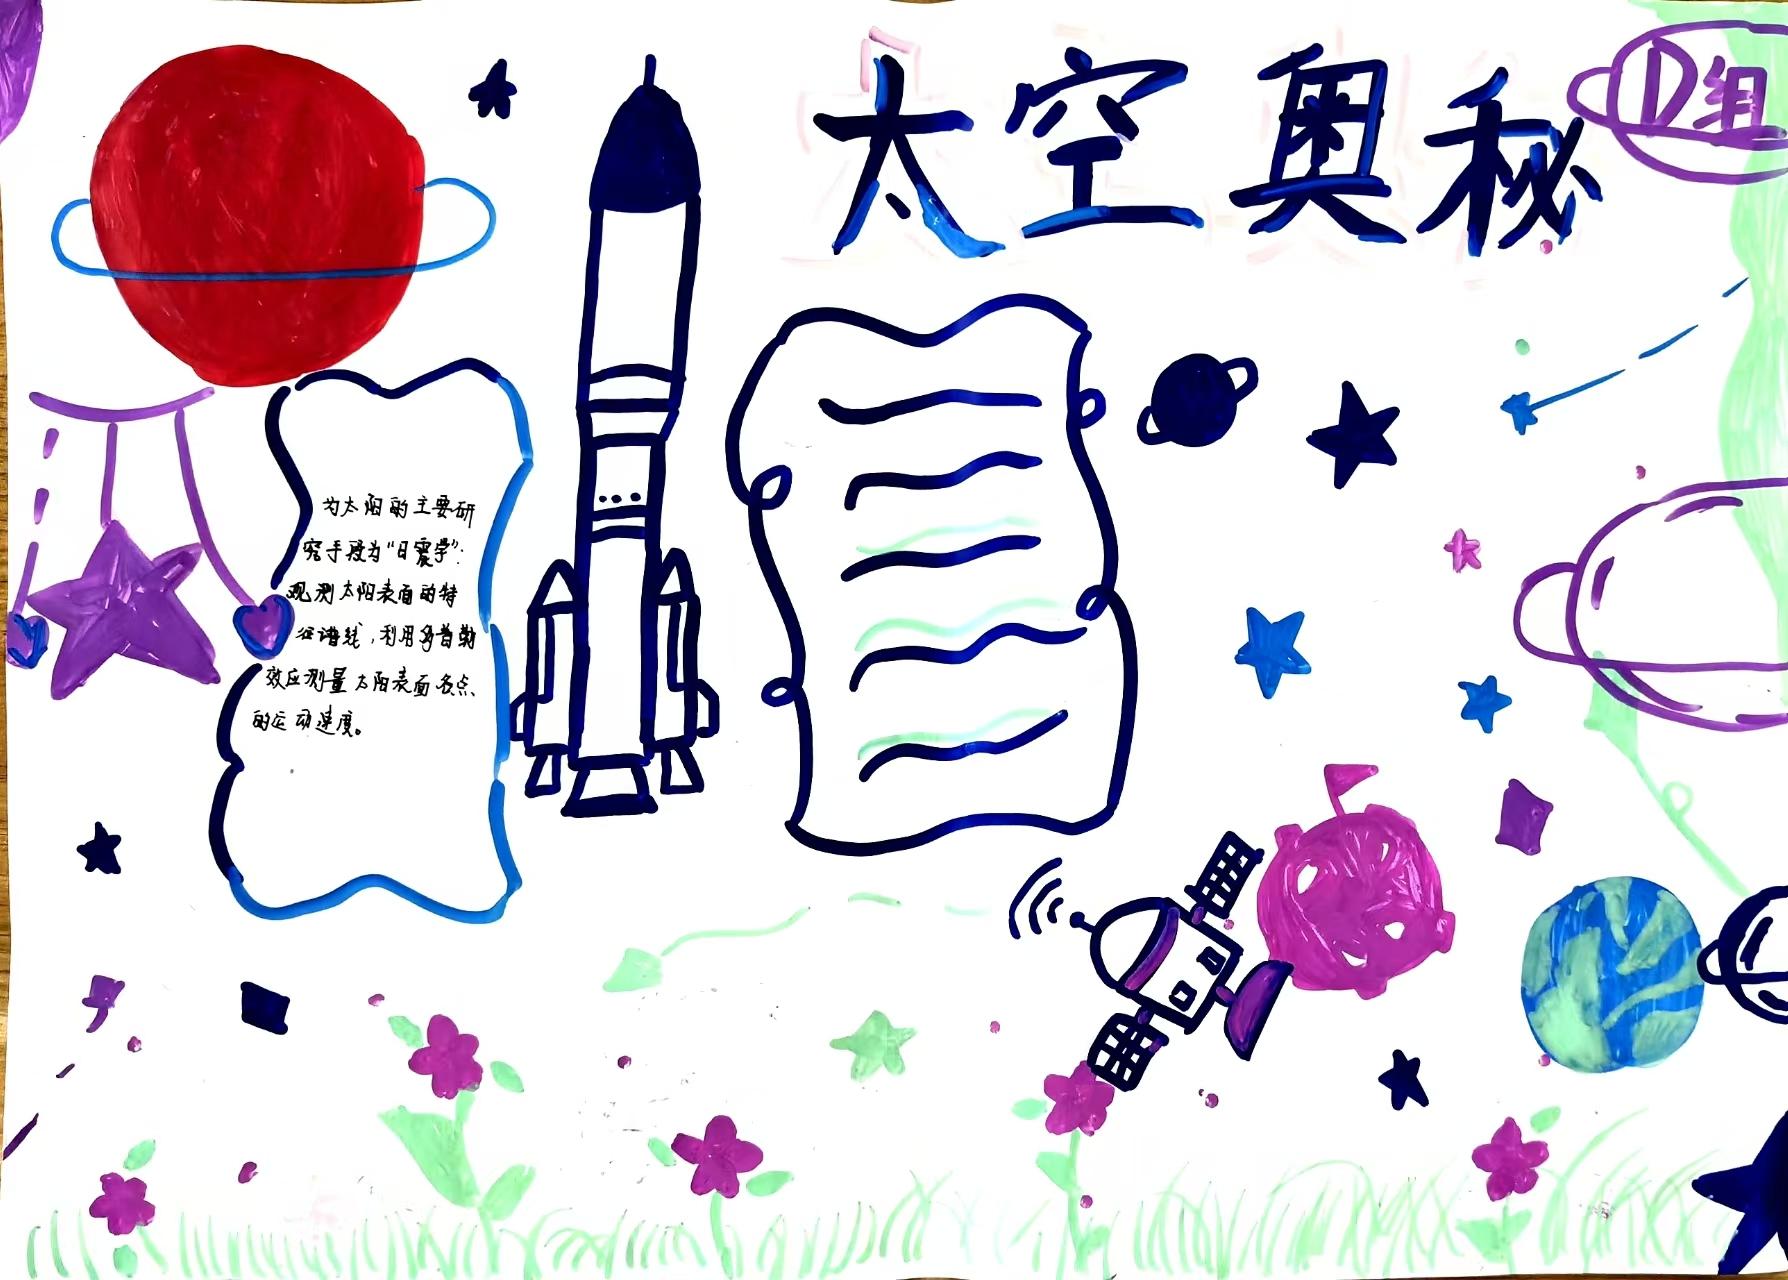 太空奥秘
D组
为太阳的主要研
究手段为“日震学”:
观测太阳表面的特
征谱线，利用多普勒
效应测量太阳表面各点
的运动速度。